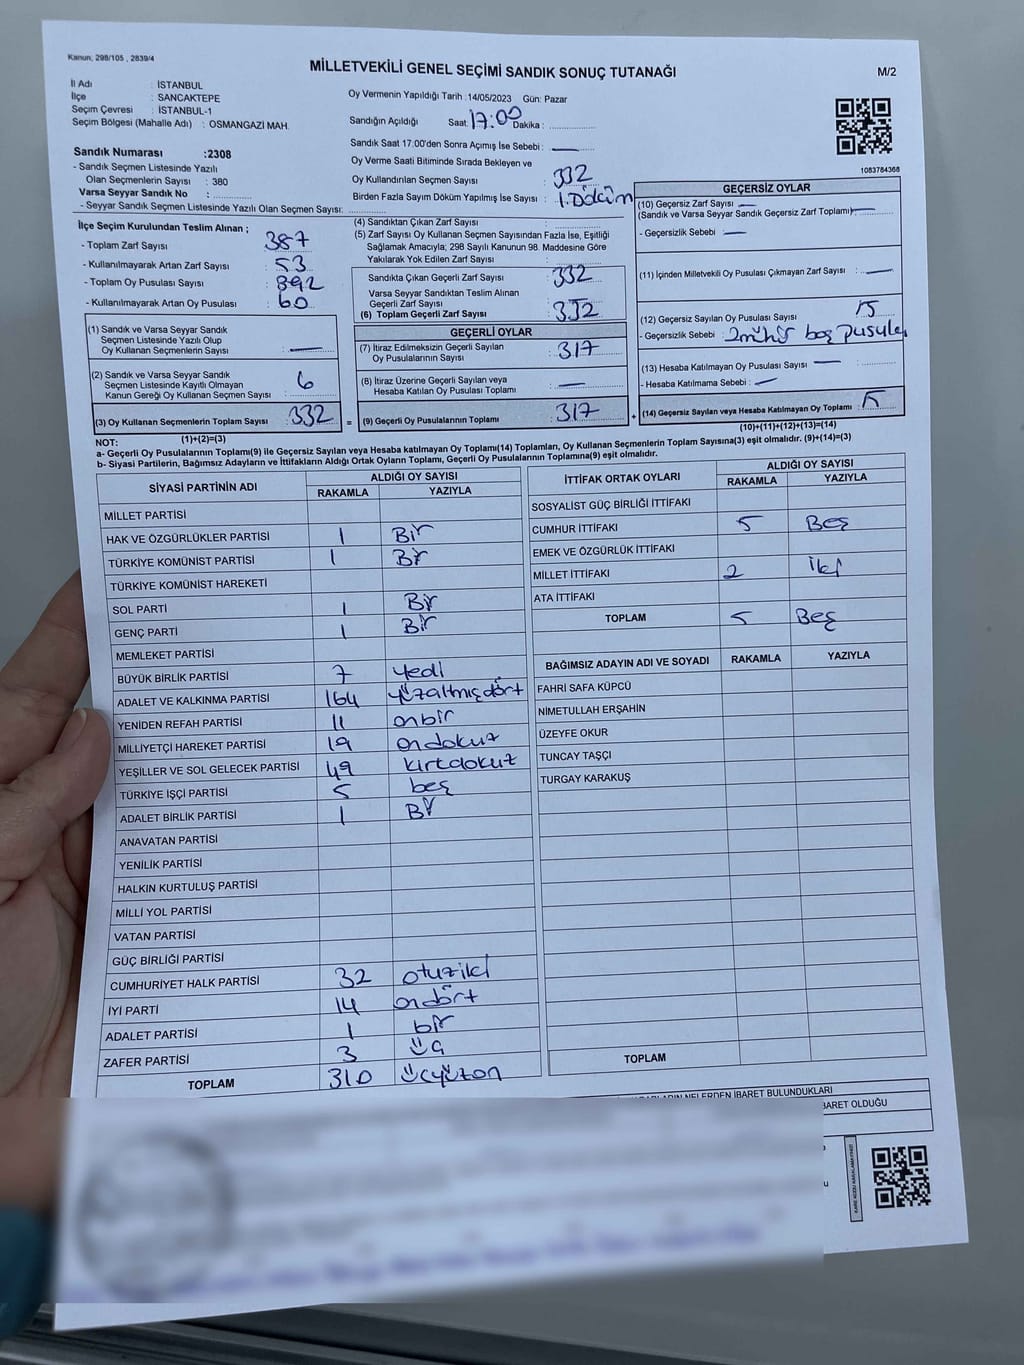 Kanun, 298/105 , 2839/4
MİLLETVEKİLİ GENEL SEÇİMİ SANDIK SONUÇ TUTANAĞI
M/2
İl Adı : İSTANBUL
İlçe : SANCAKTEPE
Seçim Çevresi : İSTANBUL-1
Seçim Bölgesi (Mahalle Adı) : OSMANGAZİ MAH.
Oy Vermenin Yapıldığı Tarih :14/05/2023 Gün: Pazar
Sandığın Açıldığı Saat: 17:00 Dakika :
Sandık Saat 17:00'den Sonra Açımış İse Sebebi : —
Oy Verme Saati Bitiminde Sırada Bekleyen ve
Oy Kullandırılan Seçmen Sayısı : 332
Birden Fazla Sayım Döküm Yapılmış İse Sayısı : 1.Döküm
1083784368
Sandık Numarası :2308
- Sandık Seçmen Listesinde Yazılı
Olan Seçmenlerin Sayısı : 380
Varsa Seyyar Sandık No :
- Seyyar Sandık Seçmen Listesinde Yazılı Olan Seçmen Sayısı:
İlçe Seçim Kurulundan Teslim Alınan ;
- Toplam Zarf Sayısı : 387
- Kullanılmayarak Artan Zarf Sayısı : 53
- Toplam Oy Pusulası Sayısı : 392
- Kullanılmayarak Artan Oy Pusulası : 60
(1) Sandık ve Varsa Seyyar Sandık
Seçmen Listesinde Yazılı Olup
Oy Kullanan Seçmenlerin Sayısı : —
(2) Sandık ve Varsa Seyyar Sandık
Seçmen Listesinde Kayıtlı Olmayan
Kanun Gereği Oy Kullanan Seçmen Sayısı : 6
(3) Oy Kullanan Seçmenlerin Toplam Sayısı : 332
(1)+(2)=(3)
(4) Sandıktan Çıkan Zarf Sayısı :
(5) Zarf Sayısı Oy Kullanan Seçmen Sayısından Fazla İse, Eşitliği
Sağlamak Amacıyla; 298 Sayılı Kanunun 98. Maddesine Göre
Yakılarak Yok Edilen Zarf Sayısı :
Sandıkta Çıkan Geçerli Zarf Sayısı : 332
Varsa Seyyar Sandıktan Teslim Alınan
Geçerli Zarf Sayısı
(6) Toplam Geçerli Zarf Sayısı : 332
GEÇERLİ OYLAR
(7) İtiraz Edilmeksizin Geçerli Sayılan
Oy Pusulalarının Sayısı : 317
(8) İtiraz Üzerine Geçerli Sayılan veya
Hesaba Katılan Oy Pusulası Toplamı : —
= (9) Geçerli Oy Pusulalarının Toplamı : 317
GEÇERSİZ OYLAR
(10) Geçersiz Zarf Sayısı —
(Sandık ve Varsa Seyyar Sandık Geçersiz Zarf Toplamı) —
- Geçersizlik Sebebi : —
(11) İçinden Milletvekili Oy Pusulası Çıkmayan Zarf Sayısı : —
(12) Geçersiz Sayılan Oy Pusulası Sayısı : 15
- Geçersizlik Sebebi : 2mühür boş pusula
(13) Hesaba Katılmayan Oy Pusulası Sayısı : —
- Hesaba Katılmama Sebebi : —
+ (14) Geçersiz Sayılan veya Hesaba Katılmayan Oy Toplamı : 15
(10)+(11)+(12)+(13)=(14)
NOT:
a- Geçerli Oy Pusulalarının Toplamı(9) ile Geçersiz Sayılan veya Hesaba katılmayan Oy Toplamı(14) Toplamları, Oy Kullanan Seçmenlerin Toplam Sayısına(3) eşit olmalıdır. (9)+(14)=(3)
b- Siyasi Partilerin, Bağımsız Adayların ve İttifakların Aldığı Ortak Oyların Toplamı, Geçerli Oy Pusulalarının Toplamına(9) eşit olmalıdır.
SİYASİ PARTİNİN ADI ALDIĞI OY SAYISI
RAKAMLA YAZIYLA
MİLLET PARTİSİ
HAK VE ÖZGÜRLÜKLER PARTİSİ 1 Bir
TÜRKİYE KOMÜNİST PARTİSİ 1 Bir
TÜRKİYE KOMÜNİST HAREKETİ
SOL PARTİ 1 Bir
GENÇ PARTİ 1 Bir
MEMLEKET PARTİSİ
BÜYÜK BİRLİK PARTİSİ 7 yedi
ADALET VE KALKINMA PARTİSİ 164 yüzaltmışdört
YENİDEN REFAH PARTİSİ 11 onbir
MİLLİYETÇİ HAREKET PARTİSİ 19 ondokuz
YEŞİLLER VE SOL GELECEK PARTİSİ 49 kırkdokuz
TÜRKİYE İŞÇİ PARTİSİ 5 beş
ADALET BİRLİK PARTİSİ 1 Bir
ANAVATAN PARTİSİ
YENİLİK PARTİSİ
HALKIN KURTULUŞ PARTİSİ
MİLLİ YOL PARTİSİ
VATAN PARTİSİ
GÜÇ BİRLİĞİ PARTİSİ
CUMHURİYET HALK PARTİSİ 32 otuziki
İYİ PARTİ 14 ondört
ADALET PARTİSİ 1 bir
ZAFER PARTİSİ 3 üç
TOPLAM 310 üçyüzon
İTTİFAK ORTAK OYLARI ALDIĞI OY SAYISI
RAKAMLA YAZIYLA
SOSYALİST GÜÇ BİRLİĞİ İTTİFAKI
CUMHUR İTTİFAKI 5 Beş
EMEK VE ÖZGÜRLÜK İTTİFAKI
MİLLET İTTİFAKI 2 iki
ATA İTTİFAKI
TOPLAM 5 Beş
BAĞIMSIZ ADAYIN ADI VE SOYADI RAKAMLA YAZIYLA
FAHRİ SAFA KÜPCÜ
NİMETULLAH ERŞAHİN
ÜZEYFE OKUR
TUNCAY TAŞÇI
TURGAY KARAKUŞ
TOPLAM
NELERDEN İBARET BULUNDUKLARI
BARET OLDUĞU